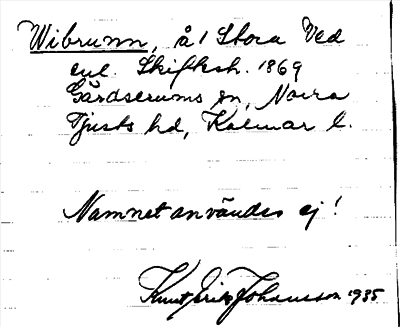 Wibrunn, å 1 Stora Ved
enl. Skifksh. 1869
Gärdserums sn, Norra
Tjusts hd, Kalmar l.
Namnet användes ej!
Knut Erik Johansson 1935